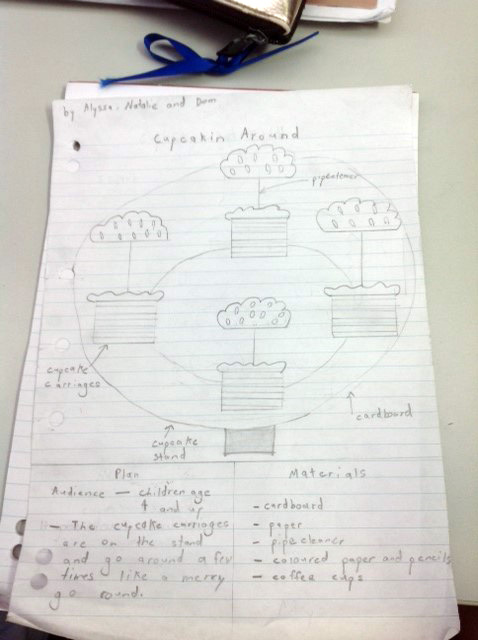 by Alyssa, Natalie and Dom
Cupcakin Around
pipecleaner
cupcake
carriages
cardboard
cupcake
stand
Plan
Audience — children age
4 and up
- The cupcake carriages
are on the stand
and go around a few
times like a merry
go round.
Materials
- cardboard
- paper
- pipecleaner
- coloured paper and pencils
- coffee cups